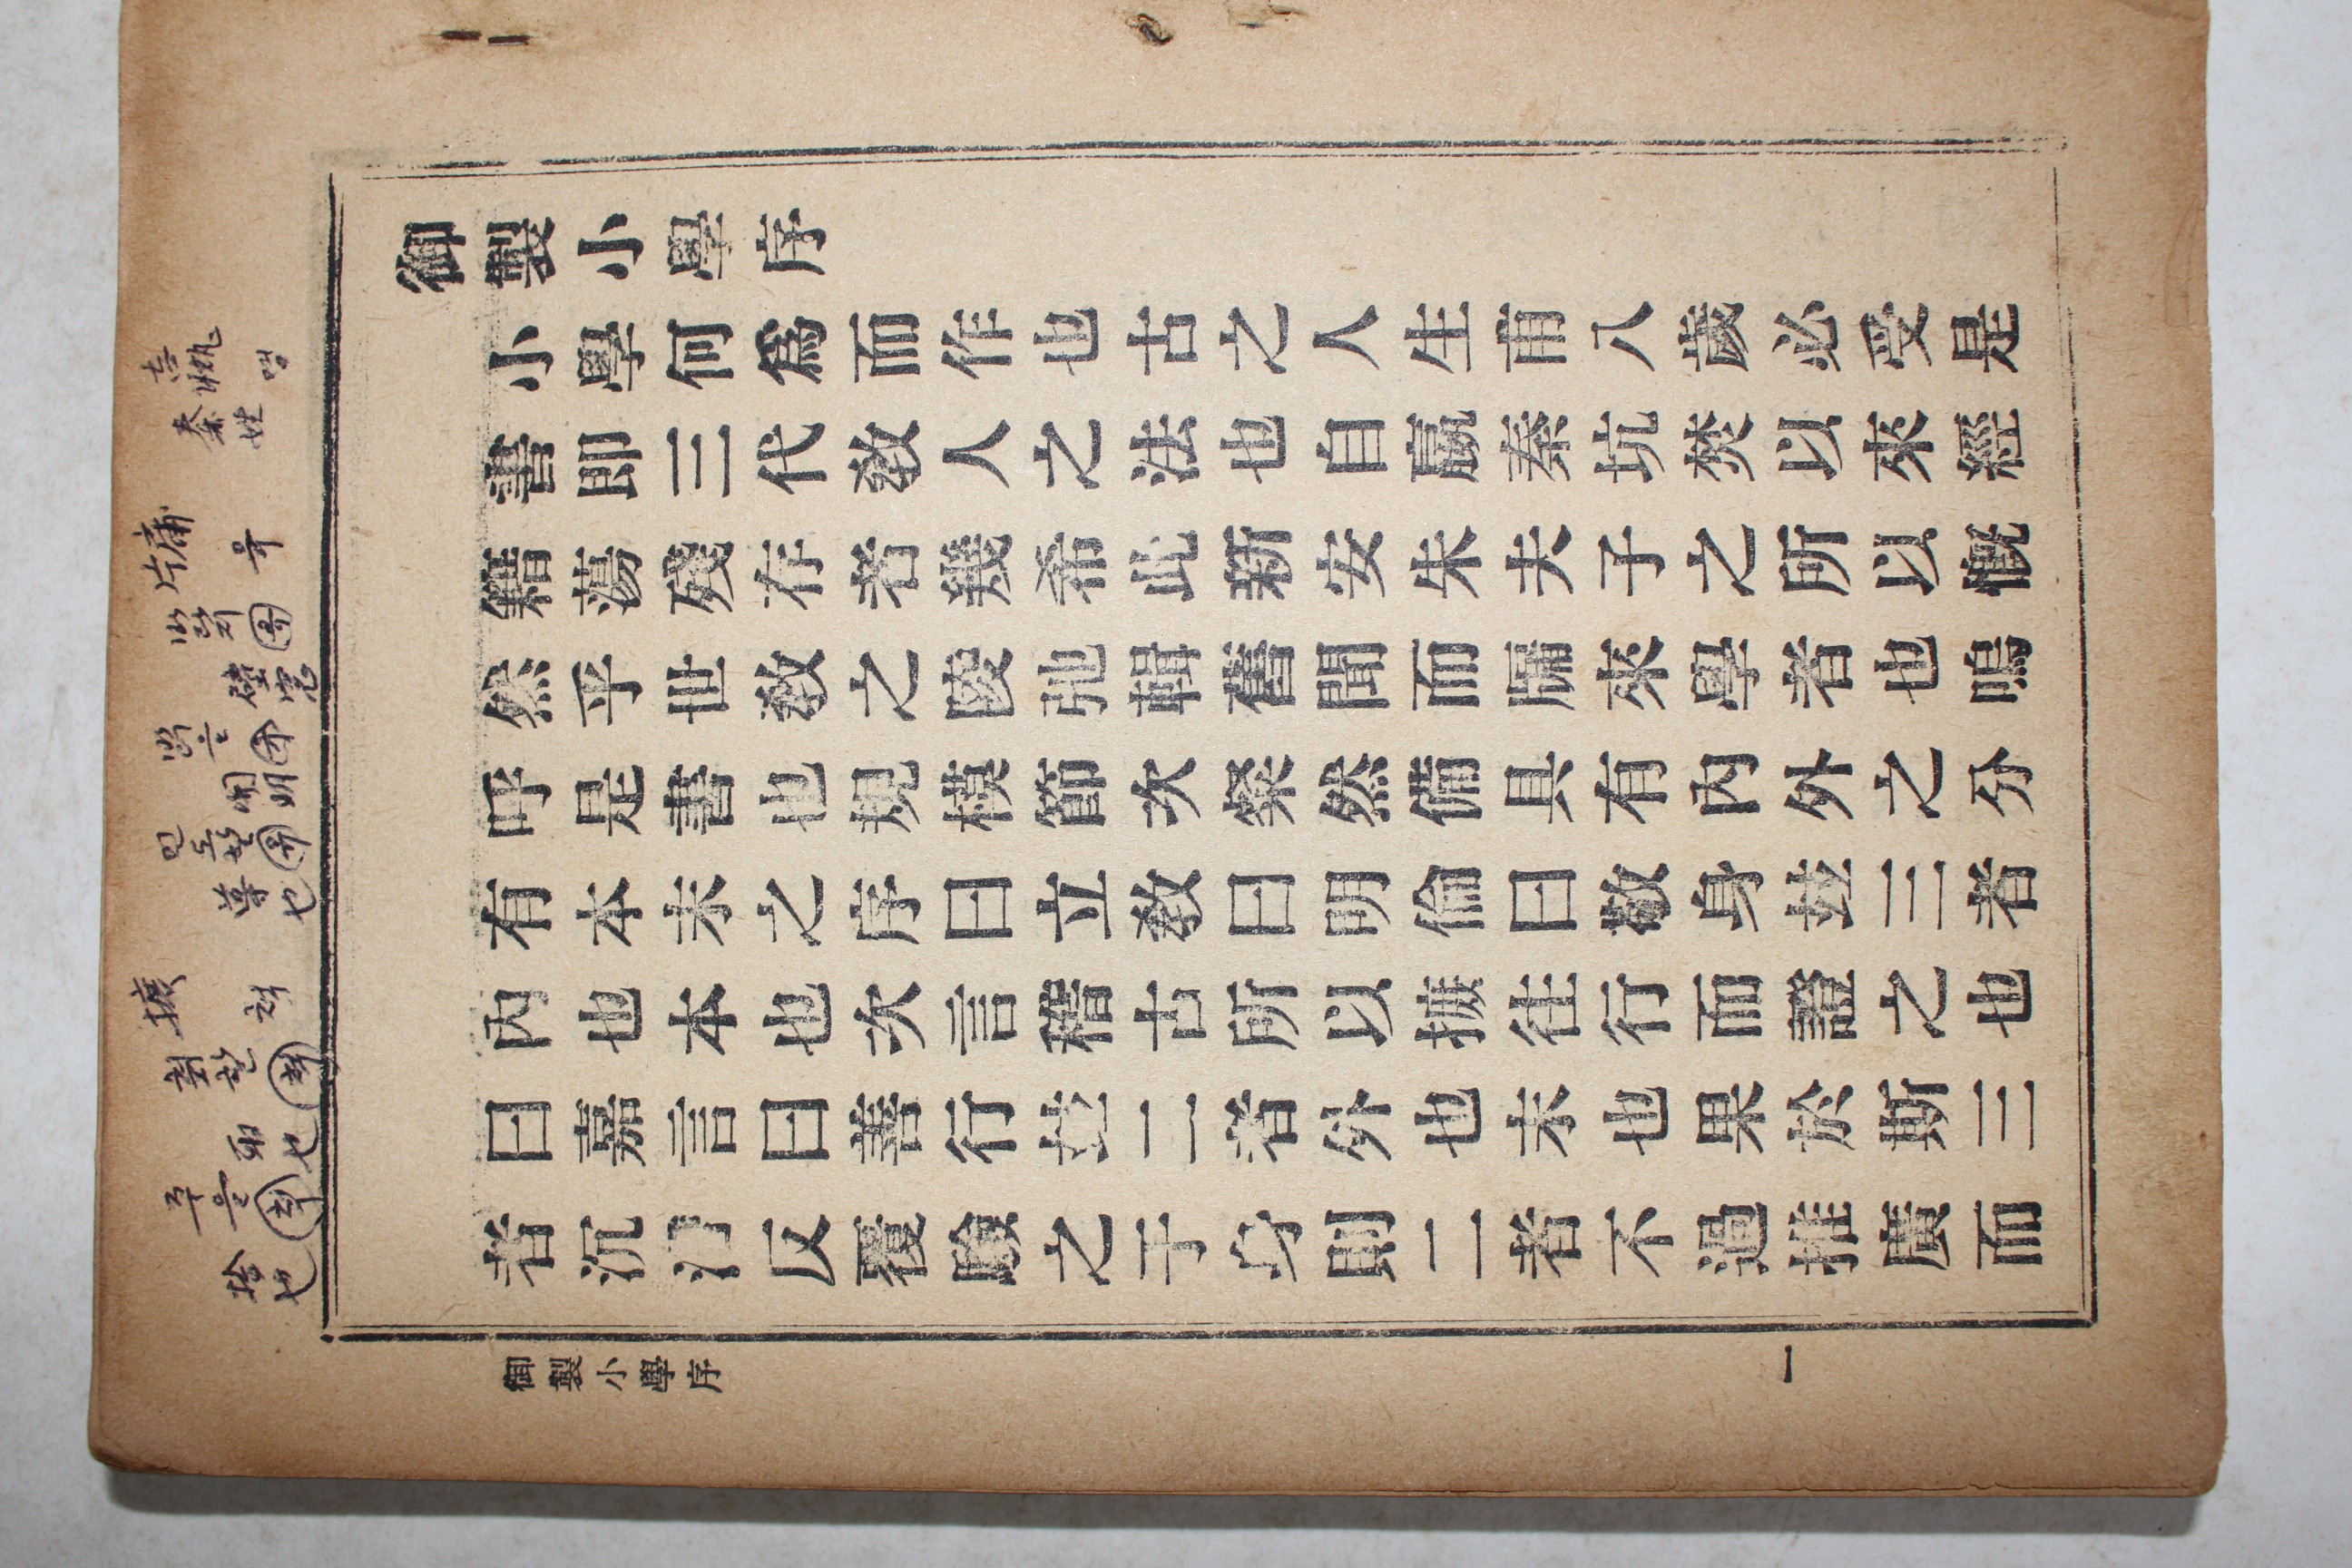 御製小學序
小學何爲而作也古之人生甫八歲必受是
書即三代敎人之法也自嬴秦坑焚以來經
籍蕩殘存者幾希此新安朱夫子之所以慨
然乎世敎之陵弛輯舊聞而牖來學者也嗚
呼是書也規模節次粲然備具有內外之分
有本末之序曰立敎曰明倫曰敬身玆三者
內也本也次言稽古所以摭往行而證之也
曰嘉言曰善行玆二者外也末也果於斯三
者沉反覆驗之于身則二者不過推廣而
御製小學序
一
秦姓
牖
壁窓
開明
導也
摭 척
取也
주을 척
拾也